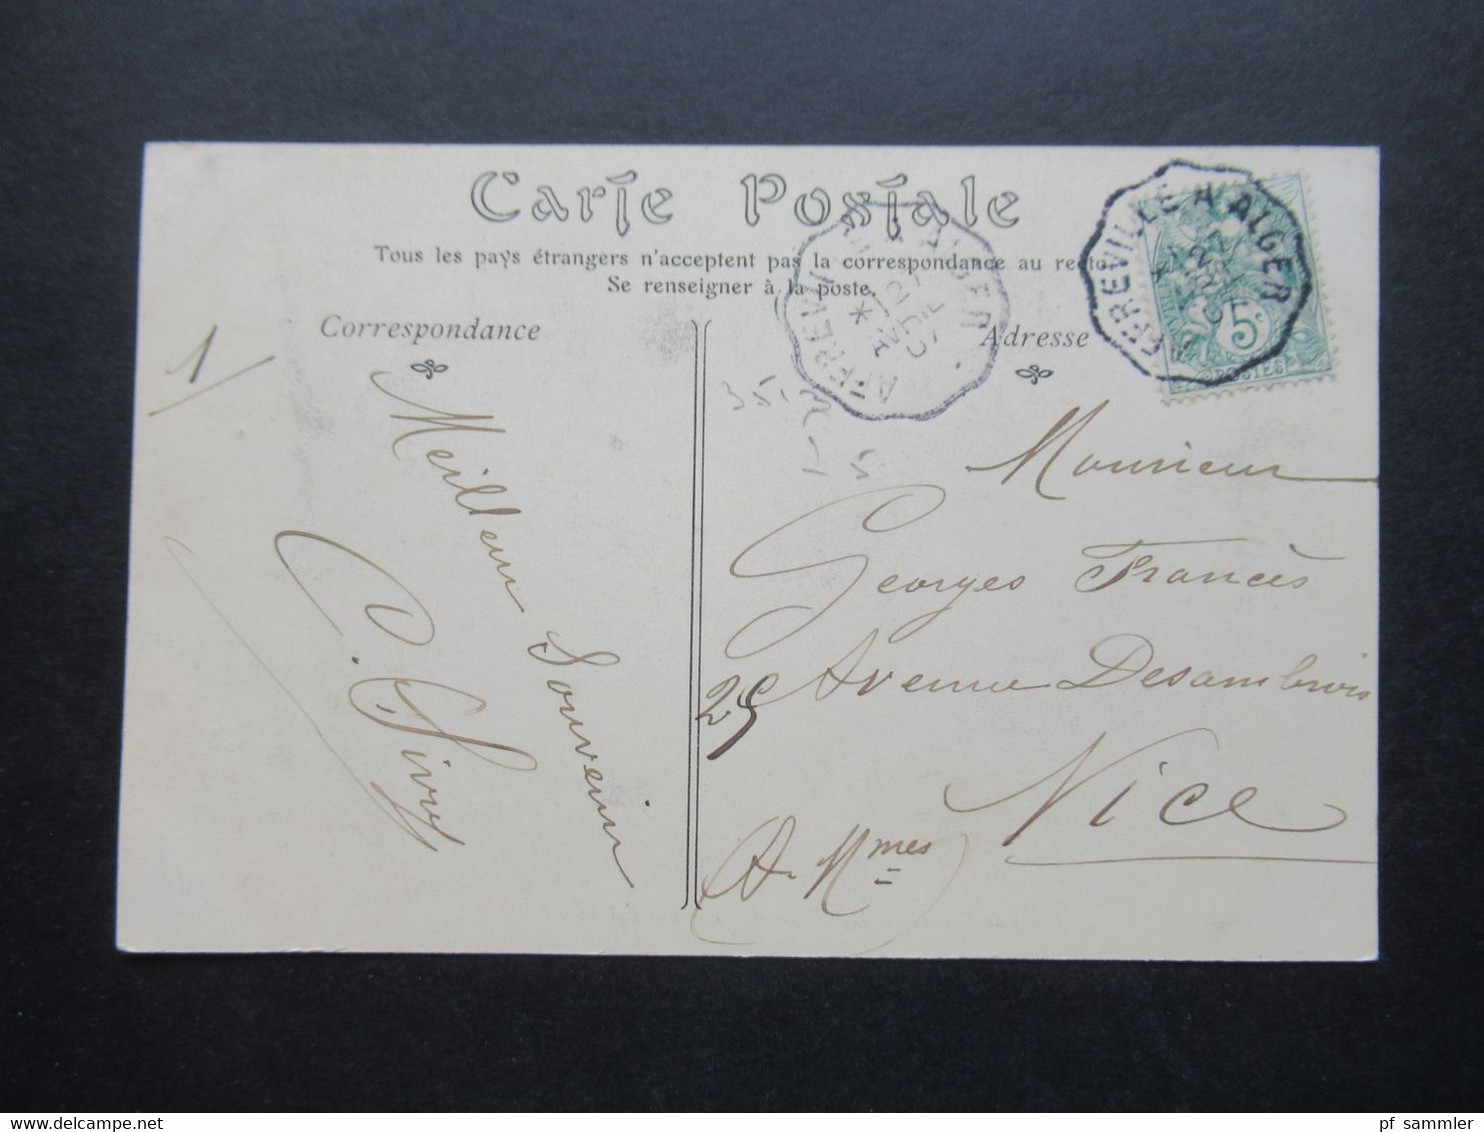 Carte Postale
Tous les pays étrangers n'acceptent pas la correspondance au recto
Se renseigner à la poste.
Correspondance
Adresse
AFFREVILLE A ALGER
27
07
AFFREVILLE A ALGER
27
5c
POSTES
1
Meilleur Souvenir
Monsieur
Georges Francès
25 Avenue Desambrois
Nice
A. Mmes
www.delcampe.net
pf_sammler